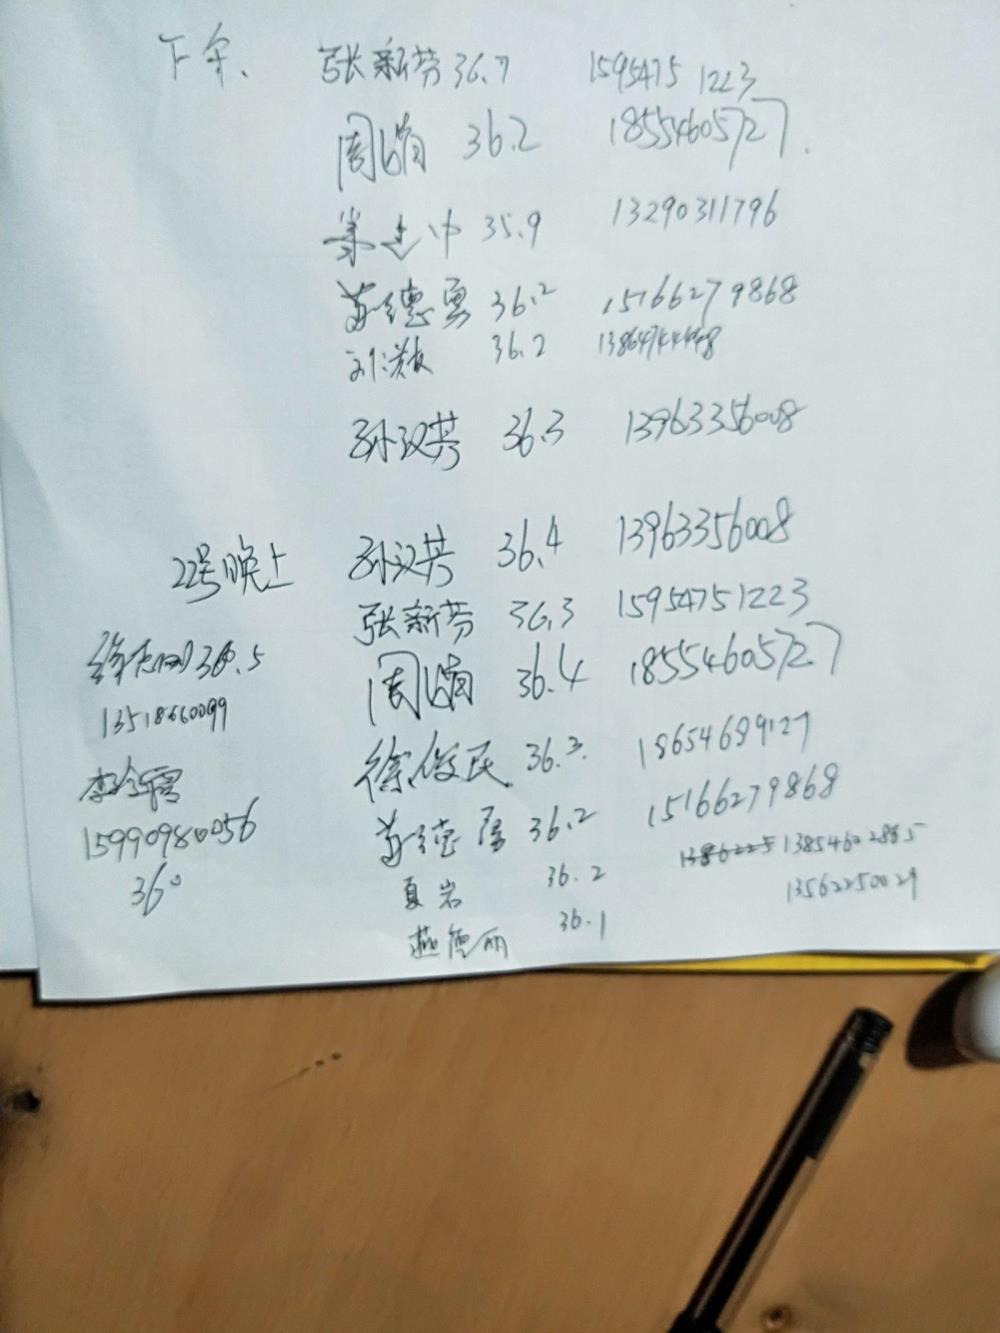 下午、 张新芬 36.7 15954751223
周娟 36.2 18554605727
中 35.9 13290311796
苏德勇 36.2 15166279868
36.2
孙汉芬 36.3 13963356008
22号晚上 孙汉芬 36.4 13963356008
张新芬 36.3 15954751223
周娟 36.4 18554605727
徐俊民 36.3. 18654689127
苏德 36.2 15166279868
夏岩 36.2 13854602885
燕德丽 36.1 13562250029
36.5
13518660099
李金霞
15990980056
36°